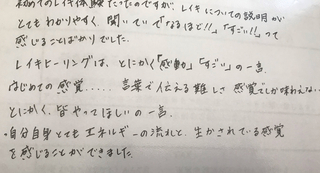 初めてのレイキ体験だったのですが、レイキについての説明が
とてもわかりやすく、聞いていて「なるほど!!」「すごい!!」って
感じることばかりでした。
レイキヒーリングは、とにかく「感動」「すごい」の一言。
はじめての感覚.....言葉で伝える難しさ 感覚でしか味わえない…
とにかく、皆やってほしいの一言。
・自分自身とてもエネルギーの流れと、生かされている感覚
を感じることができました。